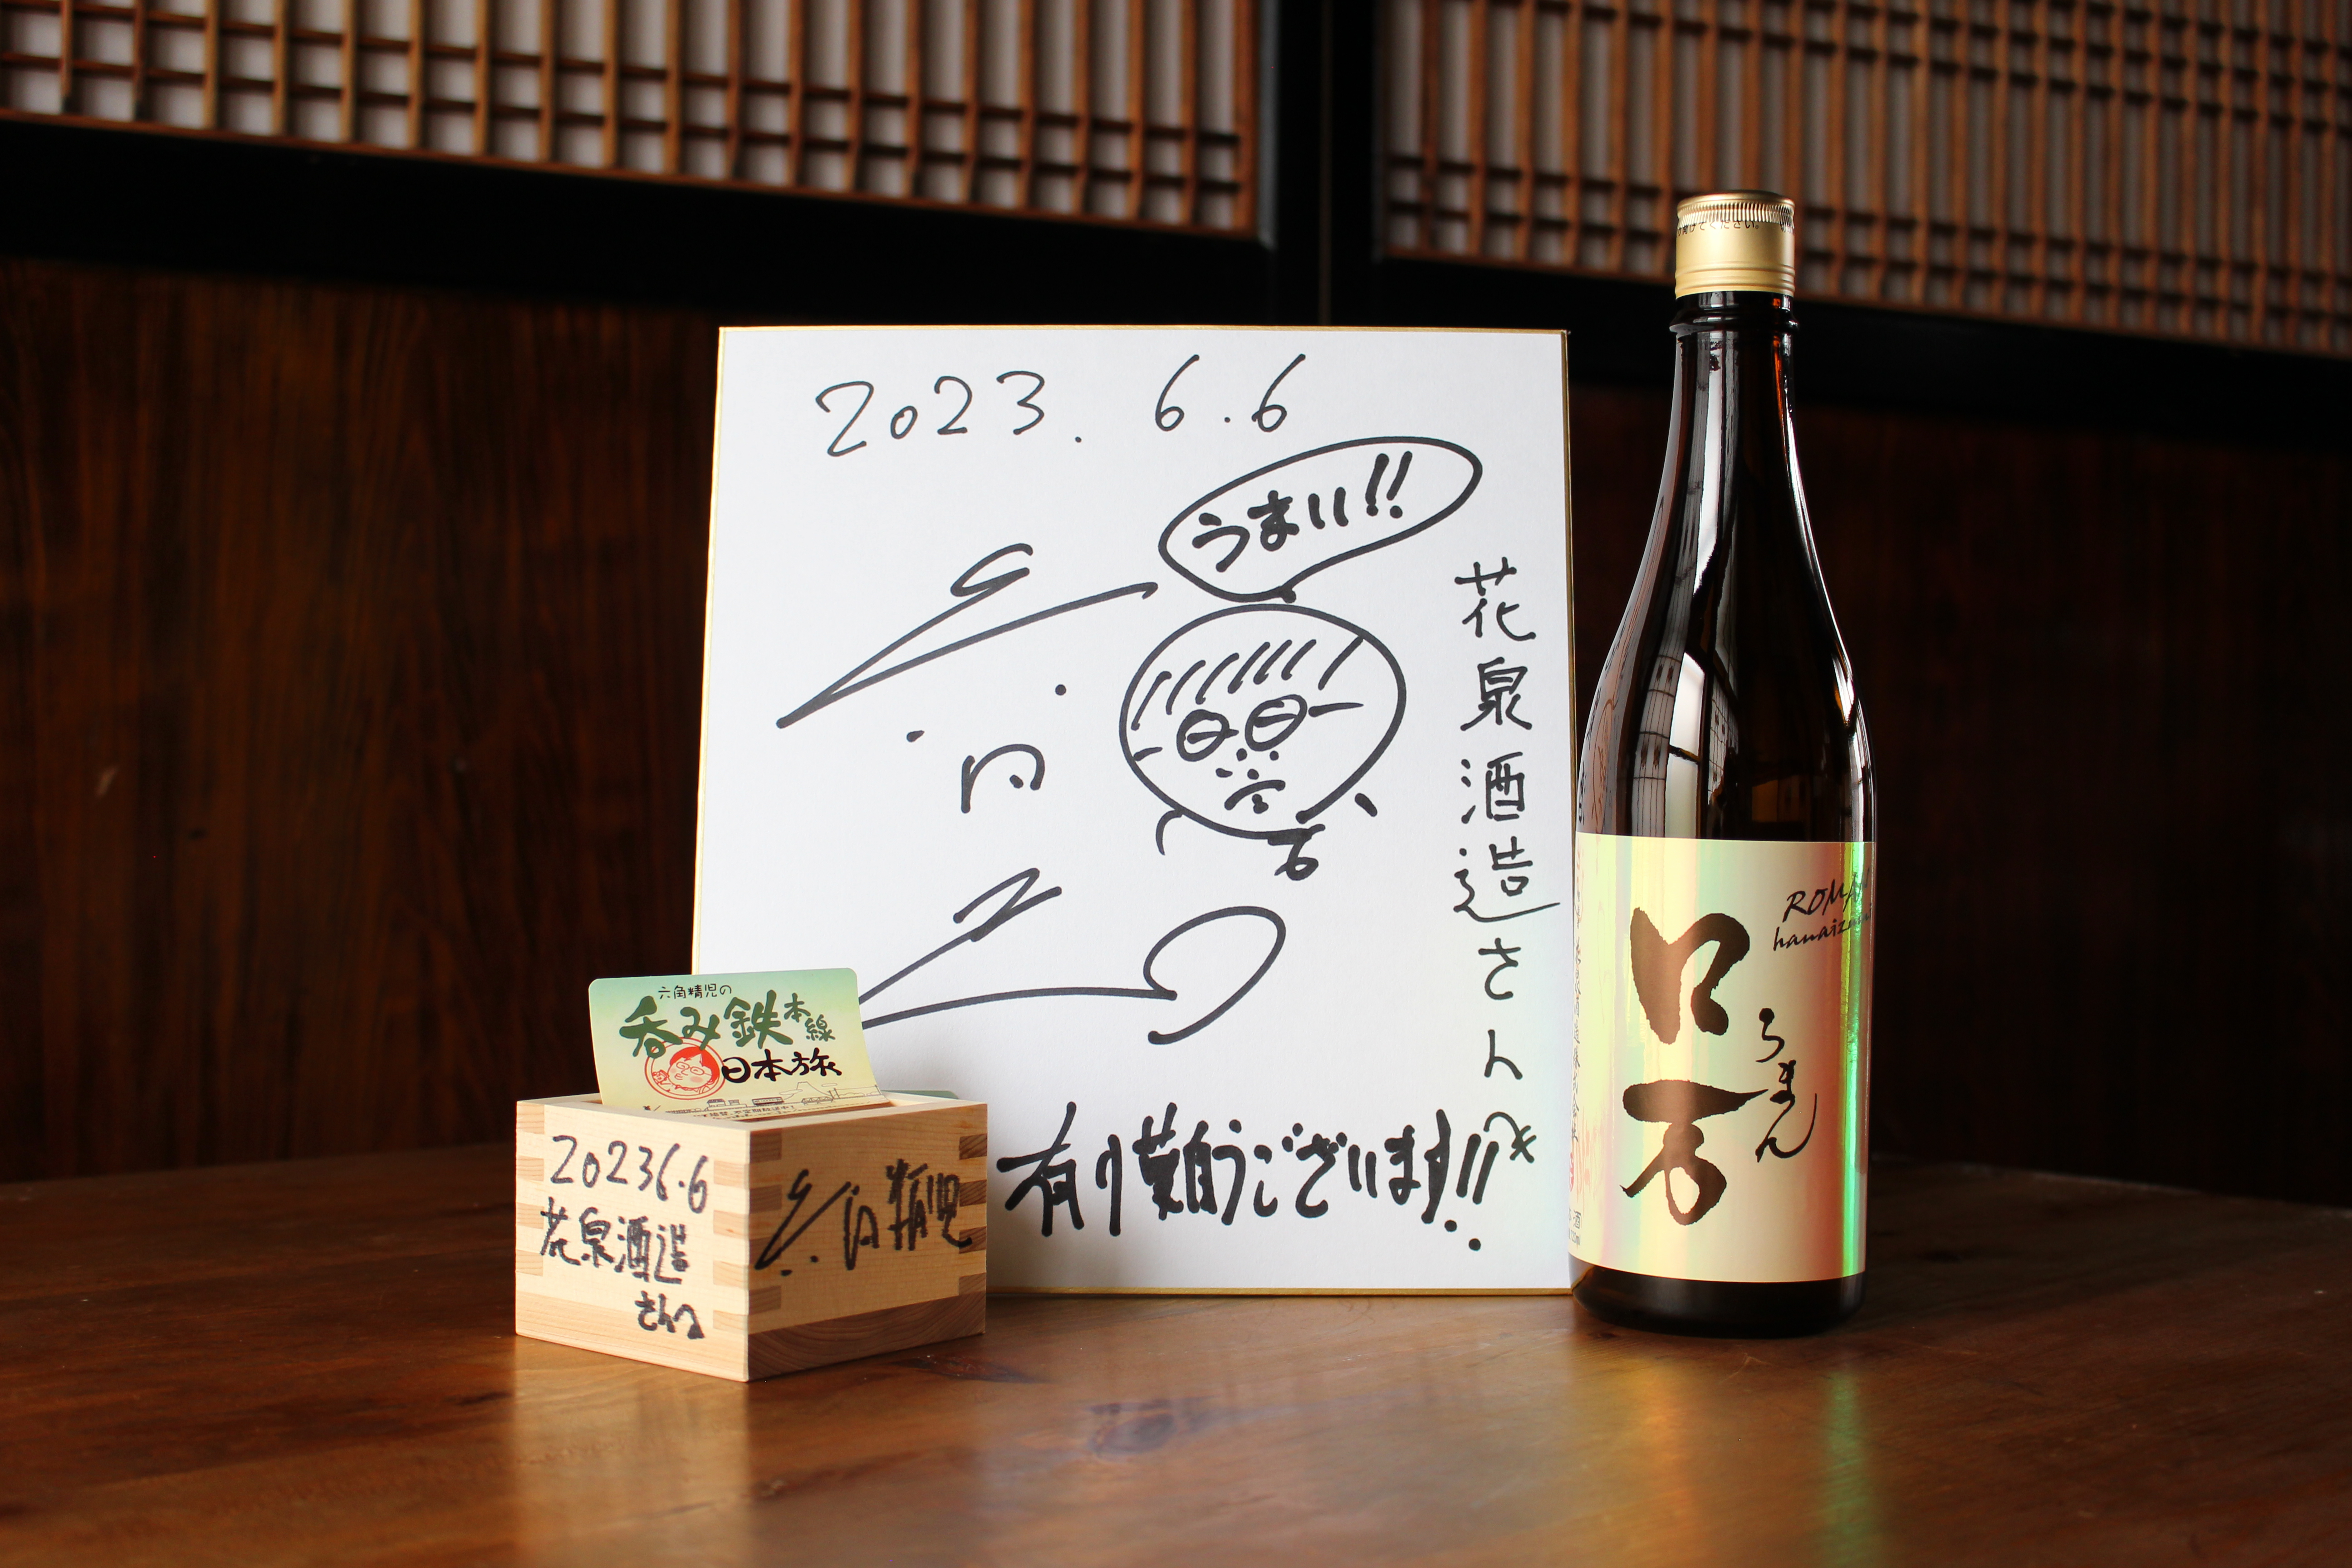 2023. 6.6
うまい!!
花泉酒造さんへ
有り難うございます!!
六角精児の
呑み鉄本線
日本旅
2023 6.6
花泉酒造
さんへ
六角精児
ロ万
ろまん
ROMAN
hanaizumi